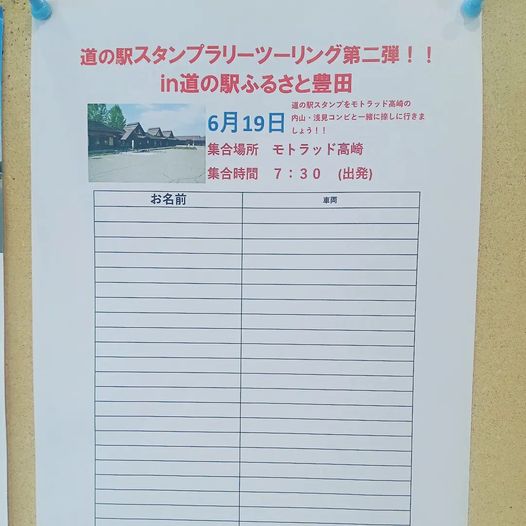 道の駅スタンプラリーツーリング第二弾！！
in道の駅ふるさと豊田
6月19日
道の駅スタンプをモトラッド高崎の
内山・浅見コンビと一緒に捺しに行きま
しょう！！
集合場所　モトラッド高崎
集合時間　７：３０　(出発)
お名前　車両